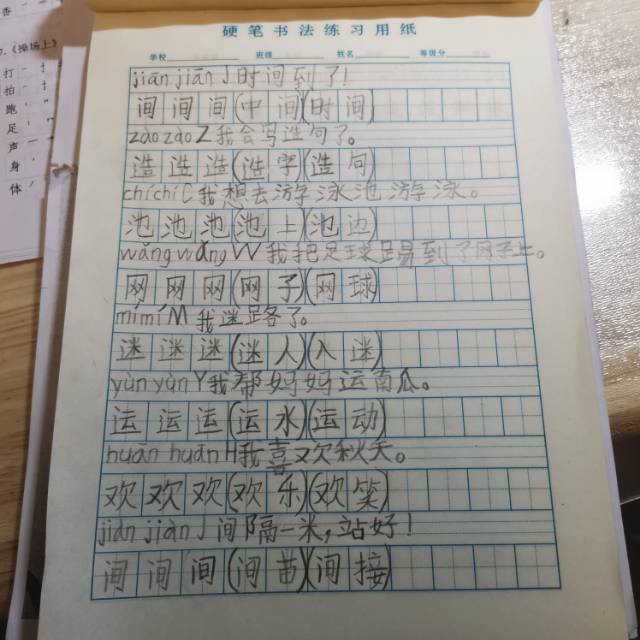 香
《操场上》
打
拍
跑
足
声
身
体
硬笔书法练习用纸
学校 班级 姓名 等级分
jiān jiān J 时间到了!
间 间 间 (中 间)(时 间)
zào zào Z 我会写造句了。
造 造 造 (造 字)(造 句)
chí chí C 我想去游学泳池游学泳。
池 池 池 (池 上)(池 边)
wǎng wǎng W 我把足球踢到了网子上。
网 网 网 (网 子)(网 球)
mí mí M 我迷路了。
迷 迷 迷 (迷 人)(入 迷)
yùn yùn Y 我帮妈妈运南瓜。
运 运 运 (运 水)(运 动)
huān huān H 我喜欢秋天。
欢 欢 欢 (欢 乐)(欢 笑)
jiàn jiàn J 间隔一米,站好!
间 间 间 (间 苗)(间 接)